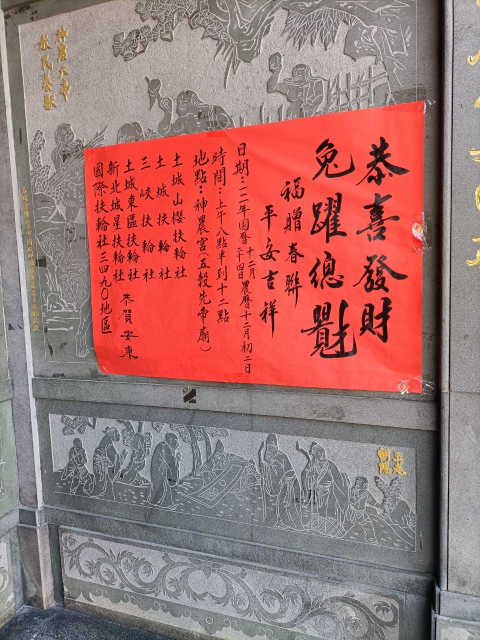 恭喜發財
兔躍總
福贈春聯
平安吉祥
日期：一一一年國曆十二月二十四日農曆十二月初二日
時間：上午八點半到十二點
地點：神農宮(五穀先帝廟)
土城山櫻扶輪社
土城扶輪社
三峽扶輪社
土城東區扶輪社
新北城星扶輪社
恭賀 安東
國際扶輪社三四九〇地區
神農大帝
教民
五老